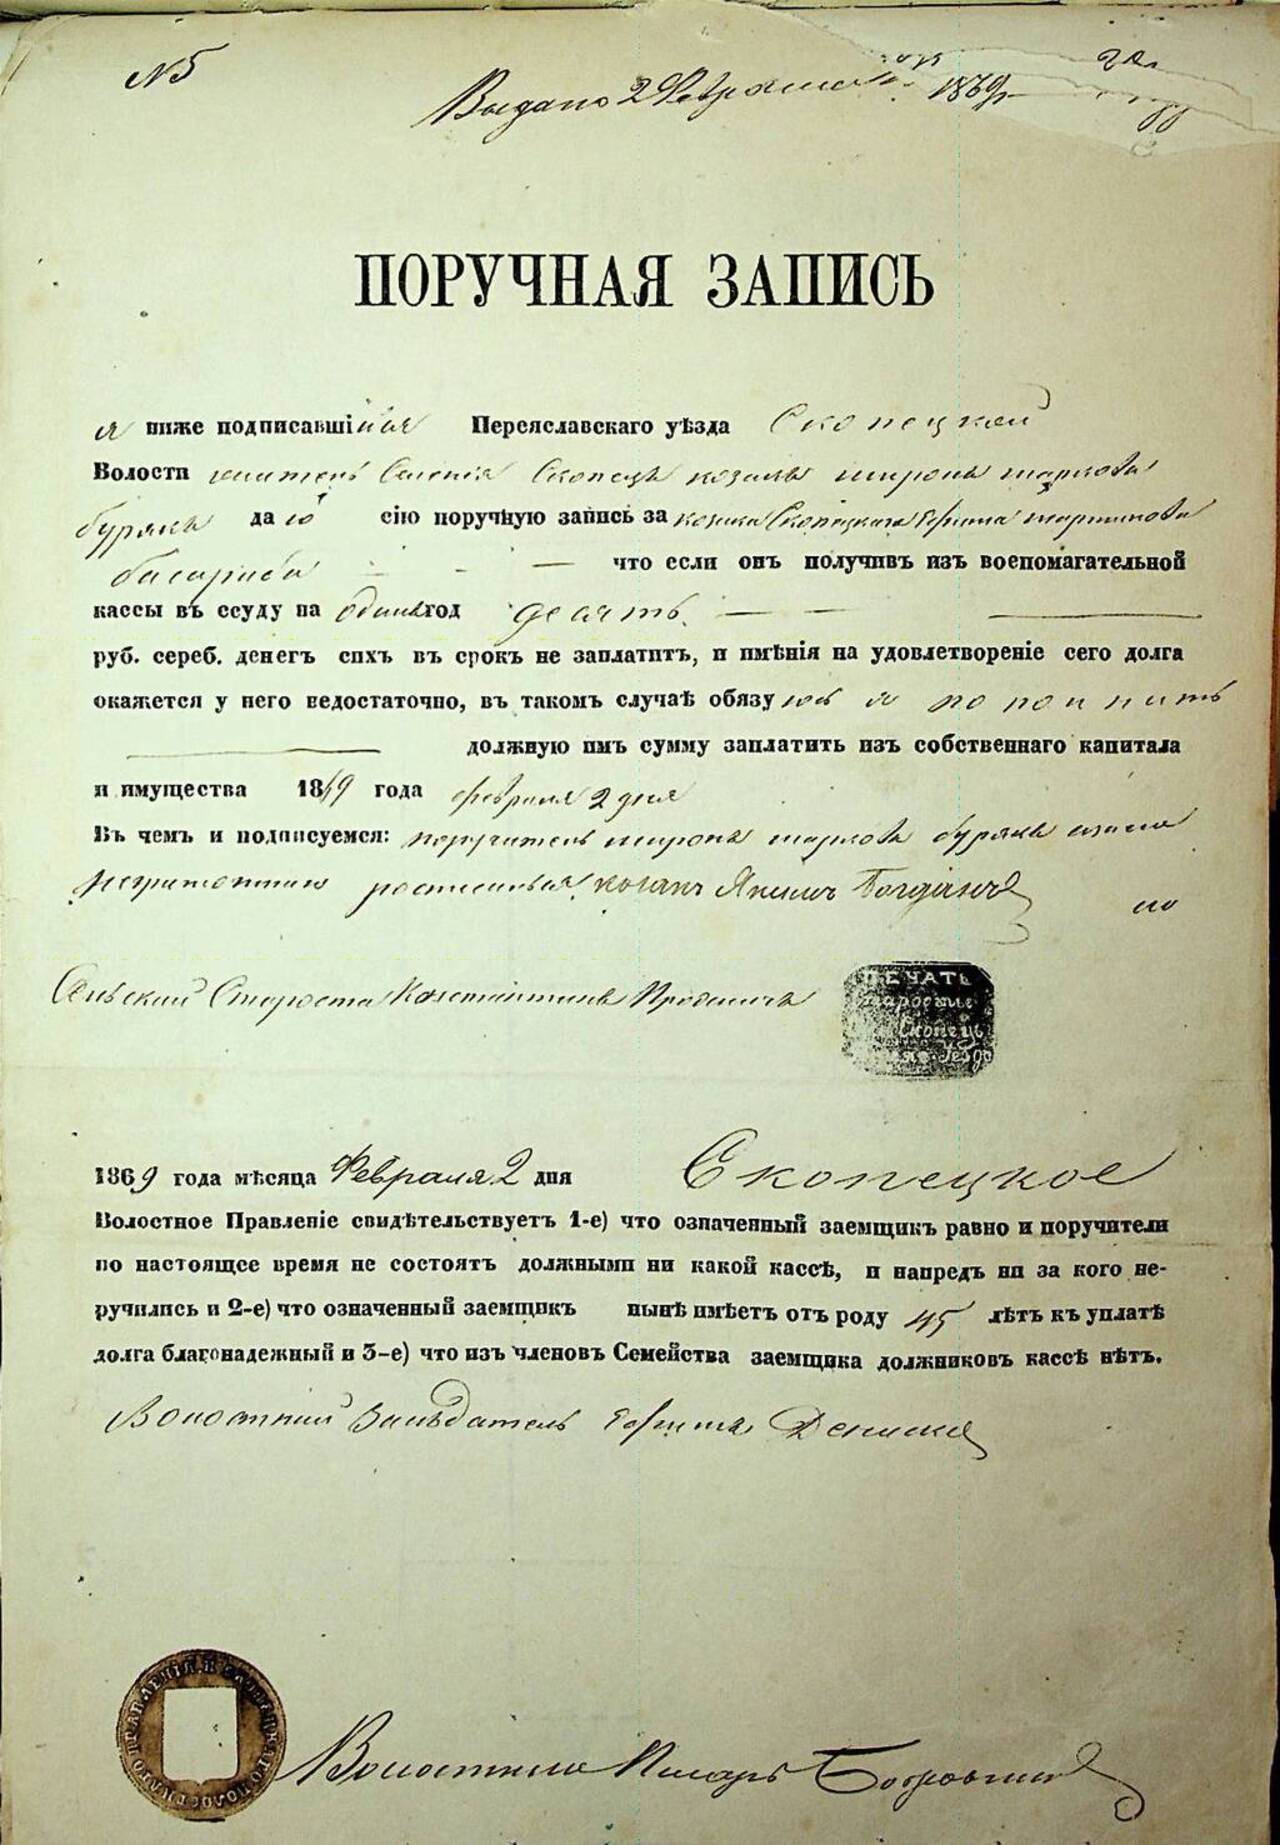 № 5
Выдано 2 Февраля 1869 г.
ПОРУЧНАЯ ЗАПИСЬ
я ниже подписавшійся Переяславскаго уѣзда Скопецкой
Волости житель Селенія Скопецъ козакъ Миронъ Марковъ
Бурякъ даю сію поручную запись за козака Скопецкаго Ефима Мартинова
что если онъ получивъ изъ воспомагательной
кассы въ ссуду на одинъ год десять
руб. сереб. денегъ сихъ въ срокъ не заплатитъ, и имѣнія на удовлетвореніе сего долга
окажется у него недостаточно, въ такомъ случаѣ обязуюсь я пополнить
должную имъ сумму заплатить изъ собственнаго капитала
и имущества 1869 года февраля 2 дня
Въ чемъ и подписуемся: поручитель Миронъ Марковъ Бурякъ а за него
неграмотнаго росписался козакъ Якимъ
Сельский Староста Константинъ
ПЕЧАТЬ
1869 года мѣсяца Февраля 2 дня Скопецкое
Волостное Правленіе свидѣтельствуетъ 1-е) что означенный заемщикъ равно и поручители
по настоящее время не состоятъ должными ни какой кассѣ, и напредъ ни за кого не-
ручились и 2-е) что означенный заемщикъ нынѣ имѣетъ отъ роду 45 лѣтъ къ уплатѣ
долга благонадежный и 3-е) что изъ членовъ Семейства заемщика должниковъ кассѣ нѣтъ.
Волостний Засѣдатель Ефимъ
Волостний Писарь